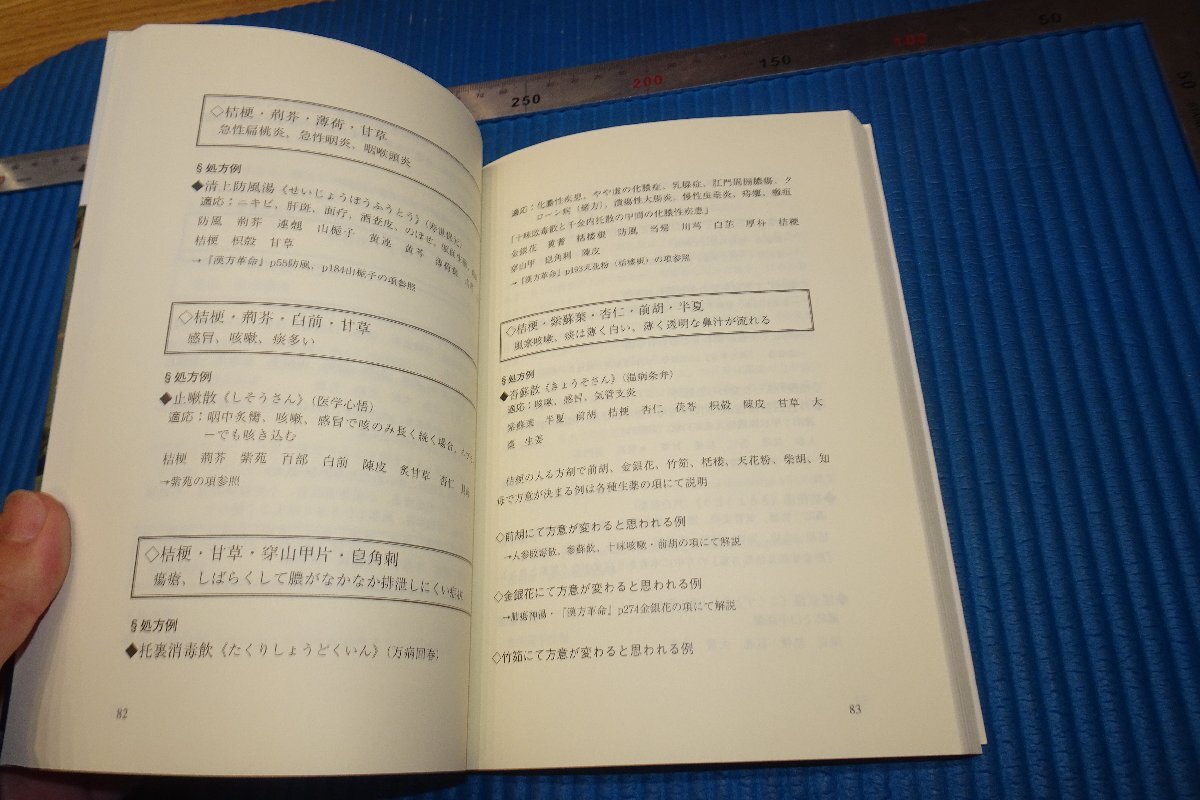 ◇桔梗・荊芥・薄荷・甘草
急性扁桃炎、急性咽炎、咽喉頭炎
§処方例
◆清上防風湯《せいじょうぼうふうとう》
適応:ニキビ、肝斑、面疔、酒査皮、のぼせ、
防風 荊芥 連翹 山梔子 黄連 黄芩 薄荷葉
桔梗 枳殻 甘草
→『漢方革命』p58防風、p184山梔子の項参照
◇桔梗・荊芥・白前・甘草
感冒、咳嗽、痰多い
§処方例
◆止嗽散《しそうさん》(医学心悟)
適応:咽中炙臠、咳嗽、感冒で咳のみ長く続く場合、
ーでも咳き込む
桔梗 荊芥 紫苑 百部 白前 陳皮 炙甘草 杏仁
→紫苑の項参照
◇桔梗・甘草・穿山甲片・皂角刺
瘍瘡、しばらくして膿がなかなか排泄しにくい症状
§処方例
◆托裏消毒飲《たくりしょうどくいん》(万病回春)
82
適応:化膿性疾患、やや虚の化膿症、乳腺症、肛門周囲膿瘍、ク
ローン病(緒方)、潰瘍性大腸炎、慢性虫垂炎、痔瘻、
「十味敗毒散と千金内托散の中間の化膿性疾患」
金銀花 黄耆 栝楼根 防風 当帰 川芎 白芷 厚朴 桔梗
穿山甲 皂角刺 陳皮
→『漢方革命』p193天花粉(栝楼根)の項参照
◇桔梗・紫蘇葉・杏仁・前胡・半夏
風寒咳嗽、痰は薄く白い、薄く透明な鼻汁が流れる
§処方例
◆杏蘇散《きょうそさん》(温病条弁)
適応:咳嗽、感冒、気管支炎
紫蘇葉 半夏 前胡 桔梗 杏仁 茯苓 枳殻 陳皮 甘草 大
棗 生姜
桔梗の入る方剤で前胡、金銀花、竹筎、栝楼、天花粉、柴胡、知
母で方意が決まる例は各種生薬の項にて説明
◇前胡にて方意が変わると思われる例
→人参敗毒散、参蘇飲、十味咳嗽・前胡の項にて解説
◇金銀花にて方意が変わると思われる例
→肺瘍神湯・『漢方革命』p274金銀花の項にて解説
◇竹筎にて方意が変わると思われる例
83
250
200
150
100
50